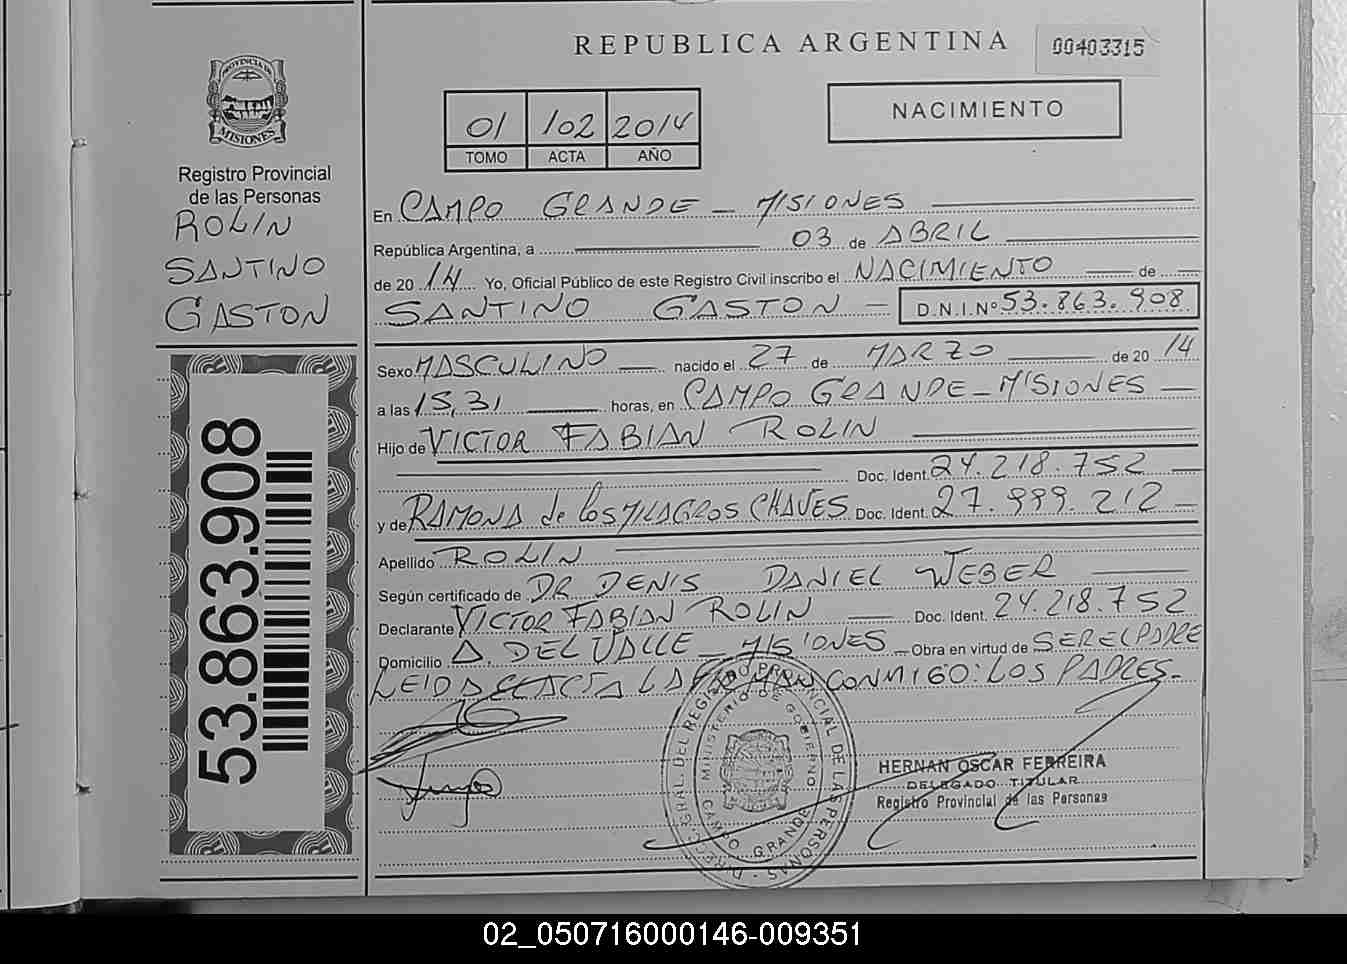 REPUBLICA ARGENTINA
00403315
PROVINCIA DE
MISIONES
Registro Provincial
de las Personas
ROLIN
SANTINO
GASTON
53.863.908
01 102 2014
TOMO ACTA AÑO
NACIMIENTO
En CAMPO GRANDE - MISIONES
República Argentina, a 03 de ABRIL
de 2014 Yo, Oficial Público de este Registro Civil inscribo el NACIMIENTO de
SANTINO GASTON - D.N.I.Nº 53.863.908
Sexo MASCULINO nacido el 27 de MARZO de 2014
a las 15,31 horas, en CAMPO GRANDE - MISIONES
Hijo de VICTOR FABIAN ROLIN
Doc. Ident. 24.218.752
y de RAMONA de los MILAGROS CHAVES Doc. Ident. 27.999.212
Apellido ROLIN
Según certificado de DR DENIS DANIEL WEBER
Declarante VICTOR FABIAN ROLIN Doc. Ident. 24.218.752
Domicilio A. DEL VALLE - MISIONES Obra en virtud de SER EL PADRE
LEIDA EL ACTA LA FIRMAN CONMIGO: LOS PADRES.-
DIREC. GRAL. DEL REGISTRO PROVINCIAL DE LAS PERSONAS
MINISTERIO DE GOBIERNO
CAMPO GRANDE
HERNAN OSCAR FERREIRA
DELEGADO TITULAR
Registro Provincial de las Personas
02_050716000146-009351